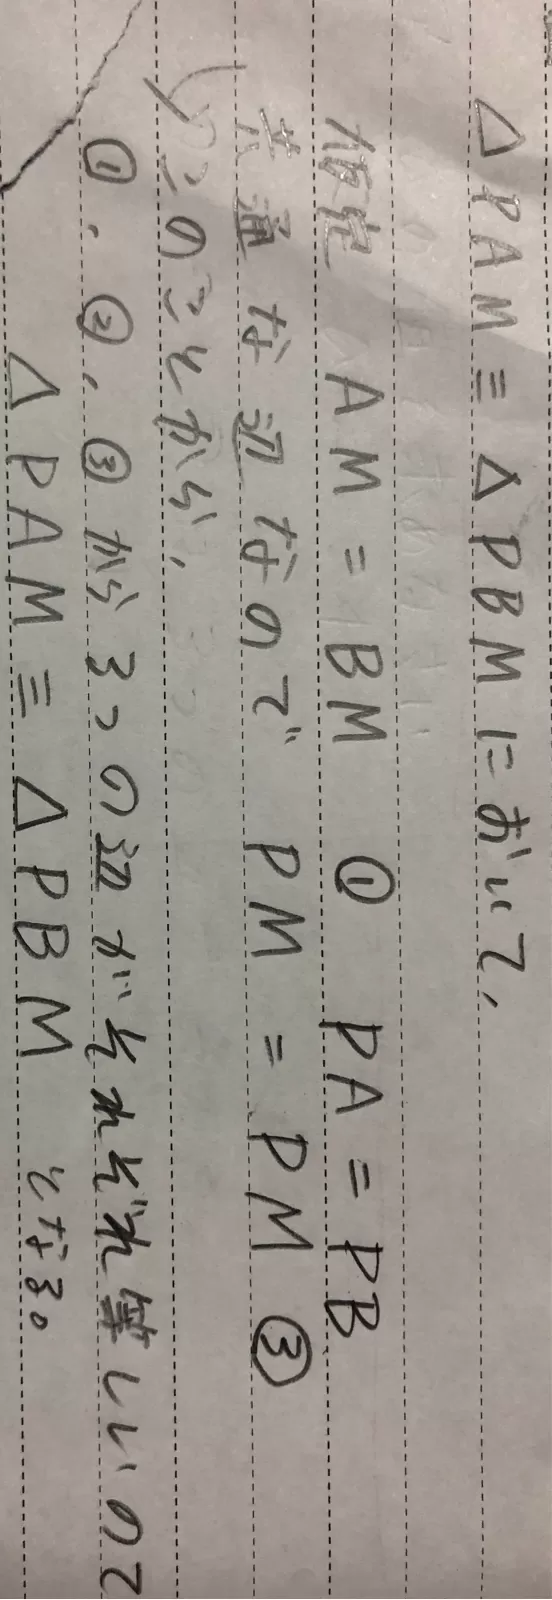 △PAM≡△PBMにおいて、
仮定 AM=BM ① PA=PB
共通な辺なので PM=PM ③
このことから、
①、②、③から3つの辺がそれぞれ等しいので
△PAM≡△PBM となる。